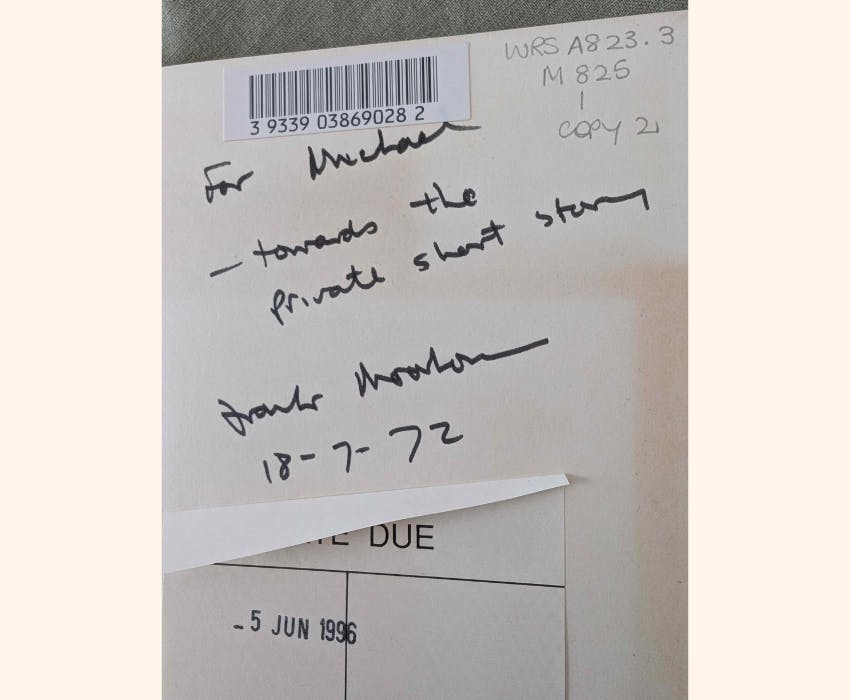 WRS A823.3
M 825
1
COPY 2
3 9339 03869028 2
For Michael
– towards the
private short story
Frank Moorhouse
18-7-72
TE DUE
- 5 JUN 1996